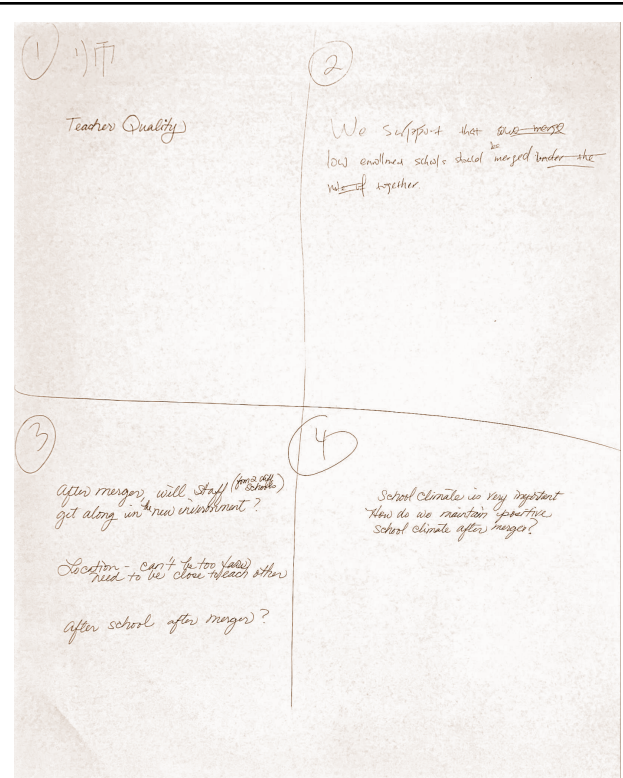 1
1) 师
Teacher Quality
2
We support that our merge
low enrollment schools should be merged under the
together
3
After merger, will staff (from 2 diff schools)
get along in the new environment?
Location - can't be too far,
need to be close to each other
After school after merger?
4
School Climate is very important
How do we maintain positive
School climate after merger?